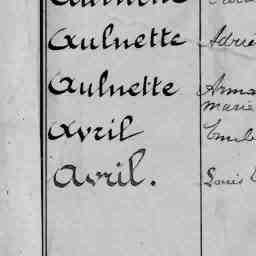 Aulnette
Aulnette Arma
marie
Avril
Avril. Louis